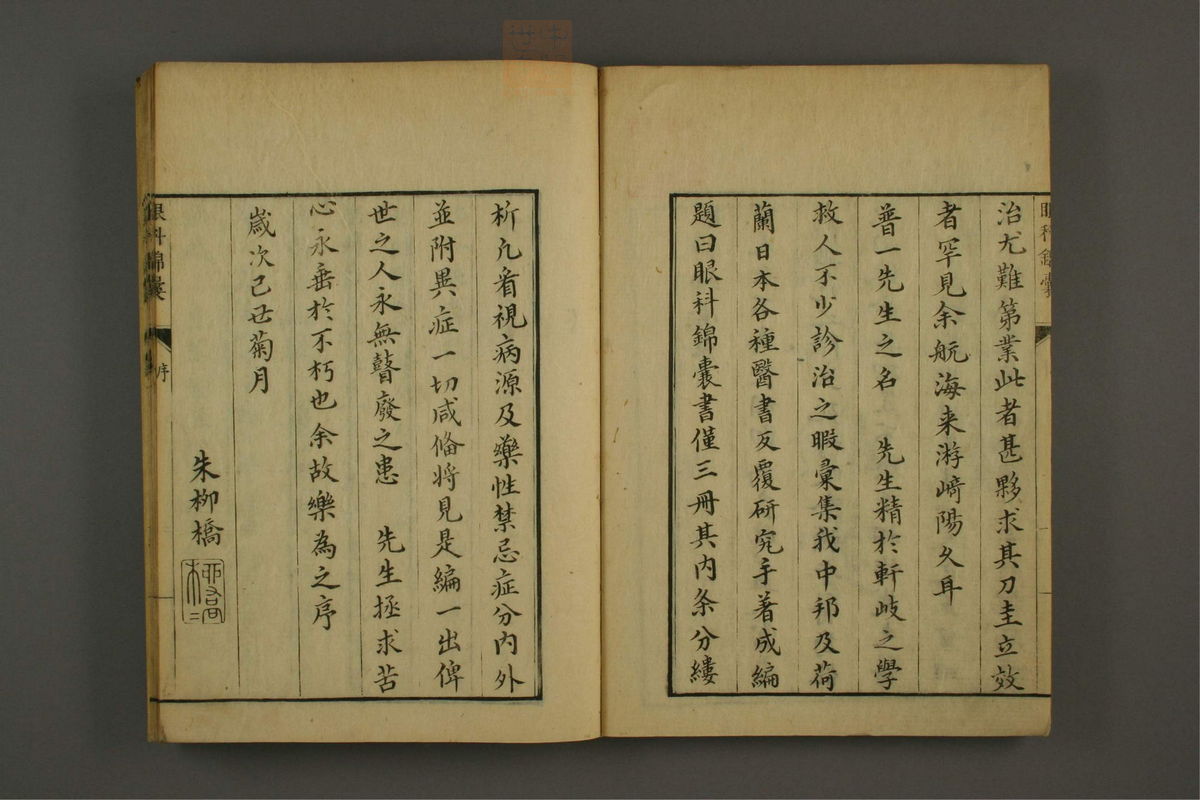 治尤難第業此者甚夥求其刀圭立效
者罕見余航海来游﨑陽久耳
普一先生之名　先生精於軒岐之學
救人不少診治之暇彙集我中邦及荷
蘭日本各種醫書反覆研究手著成編
題曰眼科錦囊書僅三冊其内条分縷
析凡看視病源及藥性禁忌症分内外
並附異症一切咸俻将見是編一出俾
世之人永無瞽廢之患　先生拯求苦
心永垂於不朽也余故樂為之序
歳次己丑菊月
朱柳橋
眼科錦囊
序